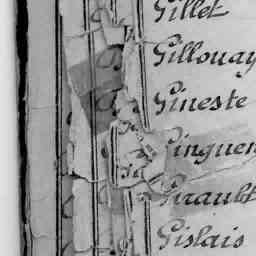 Gillet
Gillouay
Gineste
Ginguen
Girault
Gislais